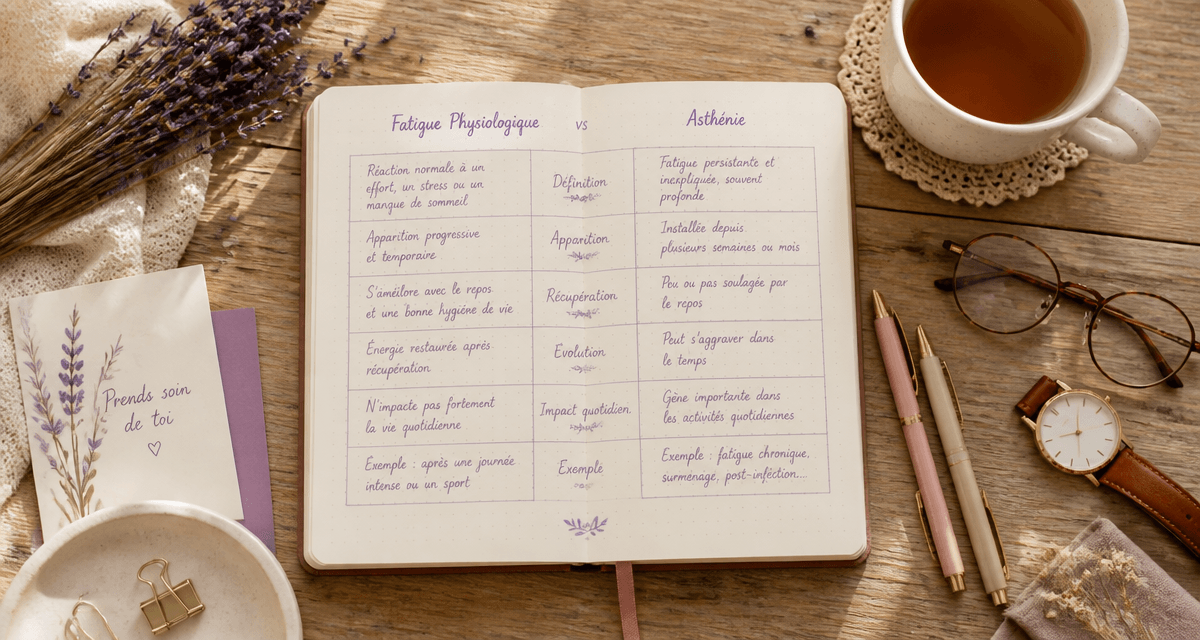 Fatigue Physiologique vs Asthénie
Réaction normale à un
effort, un stress ou un
manque de sommeil
Définition
Fatigue persistante et
inexpliquée, souvent
profonde
Apparition progressive
et temporaire
Apparition
Installée depuis
plusieurs semaines ou mois
S'améliore avec le repos
et une bonne hygiène de vie
Récupération
Peu ou pas soulagée par
le repos
Énergie restaurée après
récupération
Evolution
Peut s'aggraver dans
le temps
N'impacte pas fortement
la vie quotidienne
Impact quotidien
Gêne importante dans
les activités quotidiennes
Exemple : après une journée
intense ou un sport
Exemple
Exemple : fatigue chronique,
surmenage, post-infection...
Prends soin
de toi